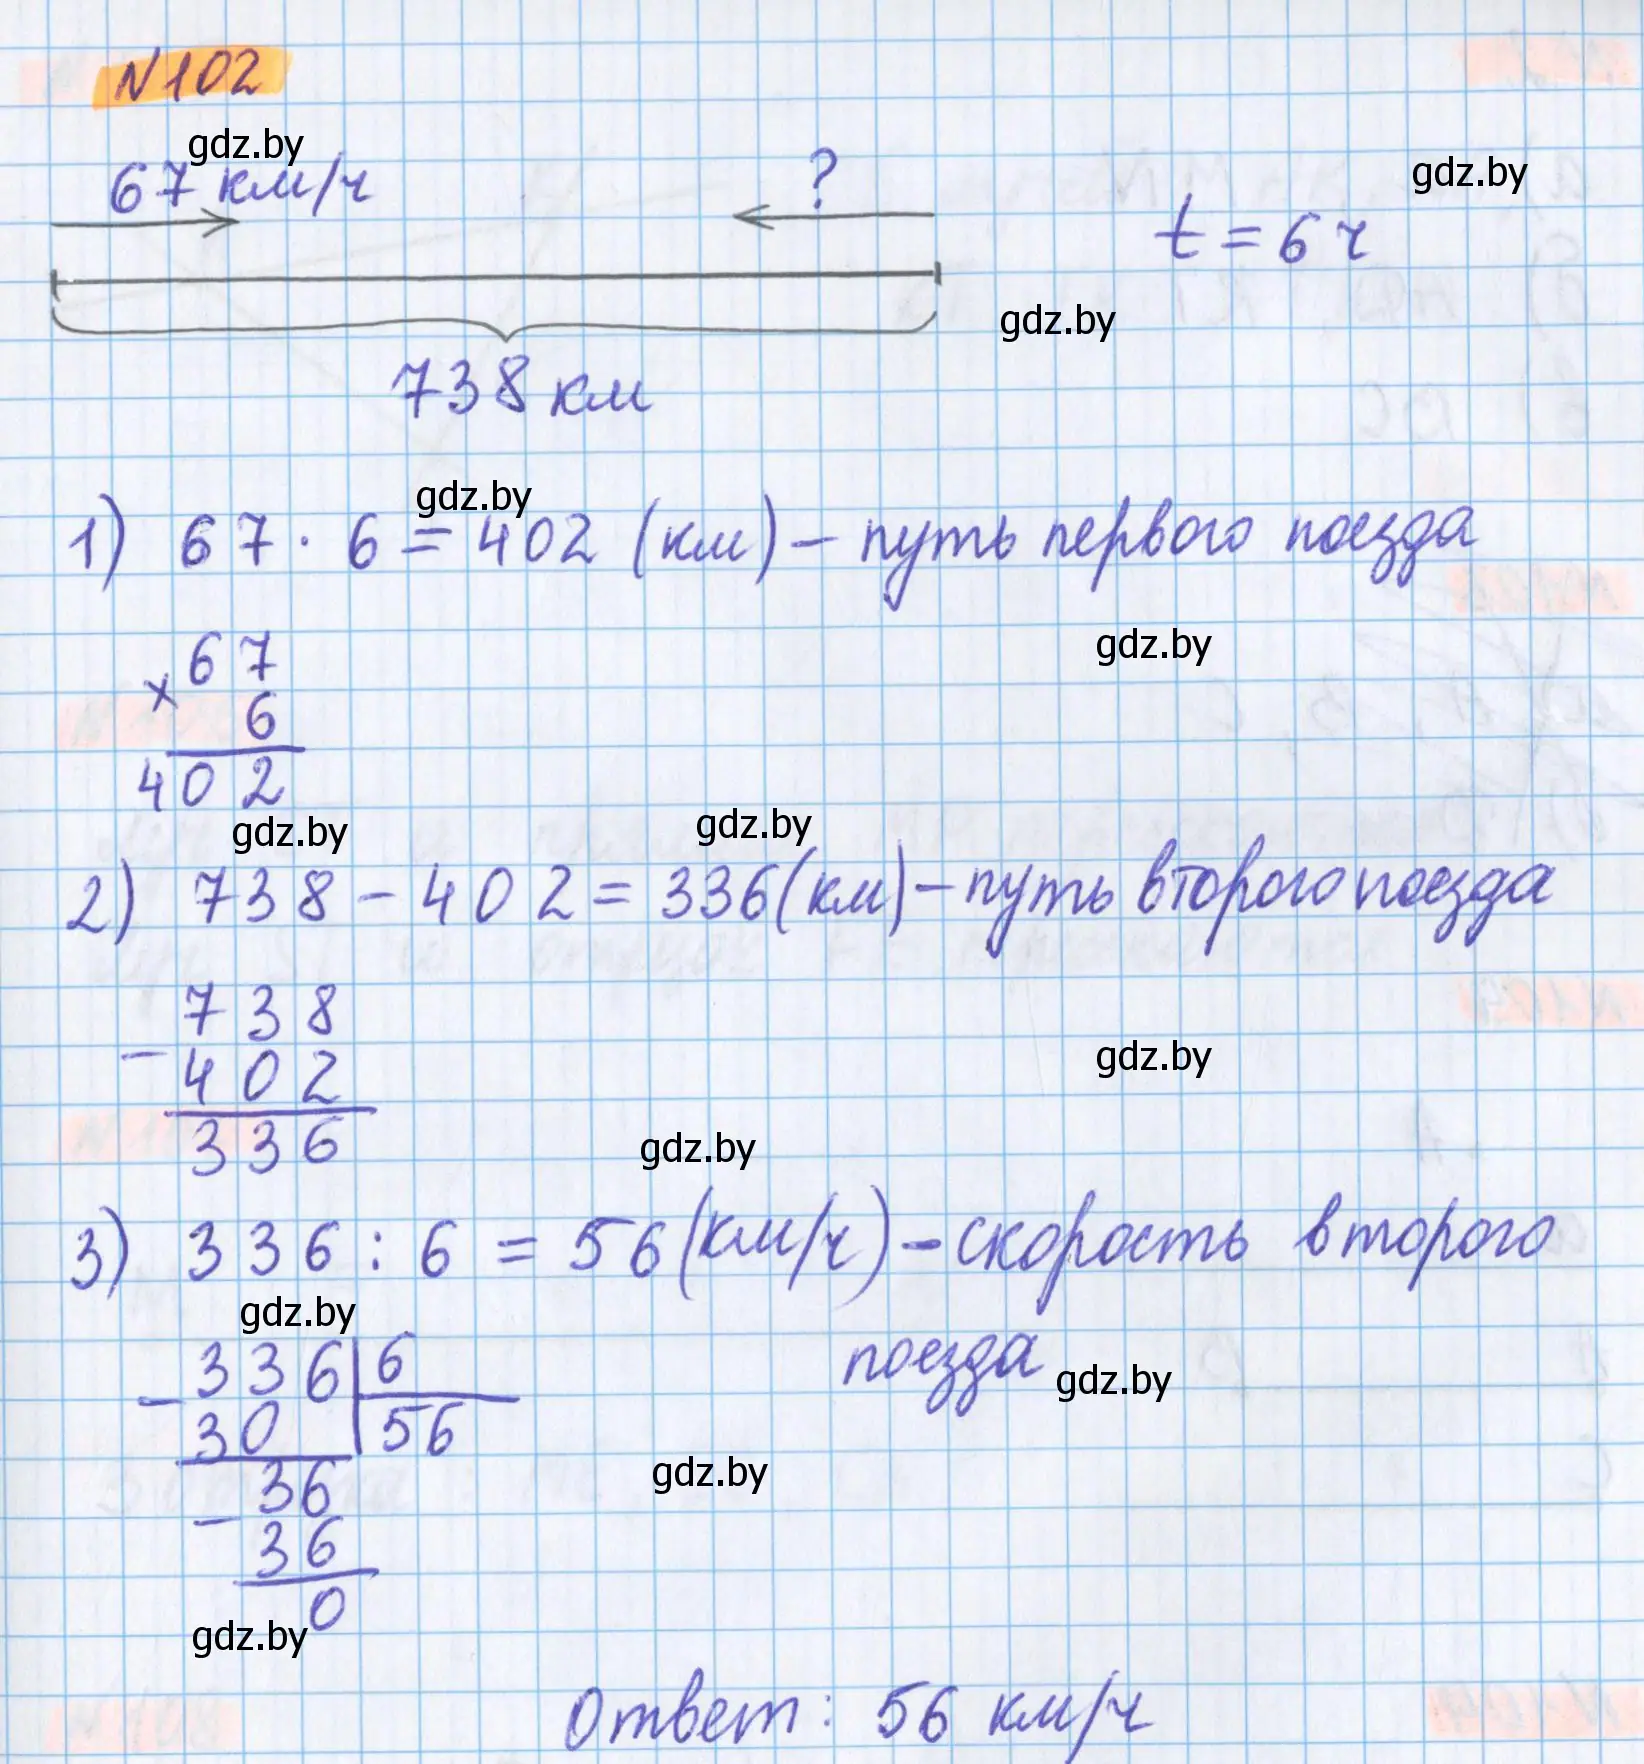 N102
gdz.by
67 км/ч
?
gdz.by
t = 6 ч
gdz.by
738 км
gdz.by
1) 67 · 6 = 402 (км) – путь первого поезда
gdz.by
67
× 6
402
gdz.by
gdz.by
2) 738 – 402 = 336 (км) – путь второго поезда
738
–
402
gdz.by
336
gdz.by
3) 336 : 6 = 56 (км/ч) – скорость второго
поезда
gdz.by
gdz.by
336 6
–
30 56
gdz.by
36
–
36
0
gdz.by
Ответ: 56 км/ч